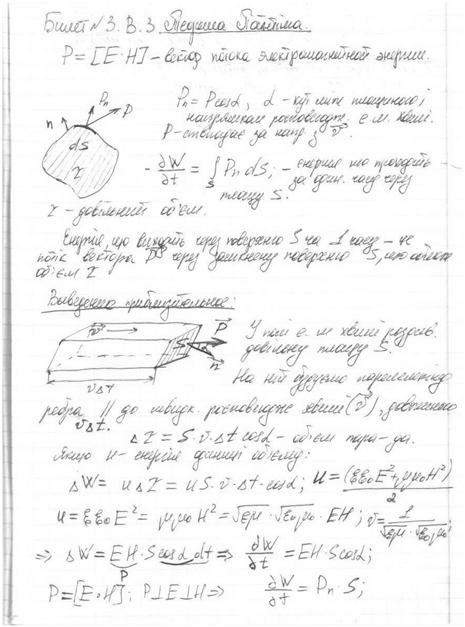 Билет №3. В.3. Теорема
P = [E·H] – вектор потока электромагнитной энергии.
Pn = P cosα, α – кут між площиною і
напрямком розповсюдж. е.м. хвилі.
P – співпадає за напр. з v⃗.
n Pn P
dS
τ
- ∂W/∂t = ∫ Pn dS; – енергія що проходить
S
за один. часу через
площу S.
τ – довільний об'єм.
Енергія, що виходить через поверхню S за 1 часу – це
потік вектора P⃗ через замкнену поверхню S,
об'єм τ
Выведение приблизительное:
v⃗ S P⃗ α n⃗
vΔt
У полі е.м. хвилі розглян.
довільну площу S.
На ній будуємо паралелепіпед
ребра // до швидк. розповсюдж. хвилі (v⃗), довжиною
vΔt.
Δτ = S·v·Δt cosα – об'єм пара-да.
Якщо u – енергія одиниці об'єму:
ΔW = uΔτ = uS·v·Δt·cosα; u = (εε₀E² + μμ₀H²)/2
u = εε₀E² = μμ₀H² = √εμ · √ε₀μ₀ · EH; v = 1/(√εμ · √ε₀μ₀);
⇒ ΔW = EH·S cosα dt ⇒ ∂W/∂t = EH·S cosα;
P
P = [E×H]; P⊥E⊥H ⇒ ∂W/∂t = Pn·S;